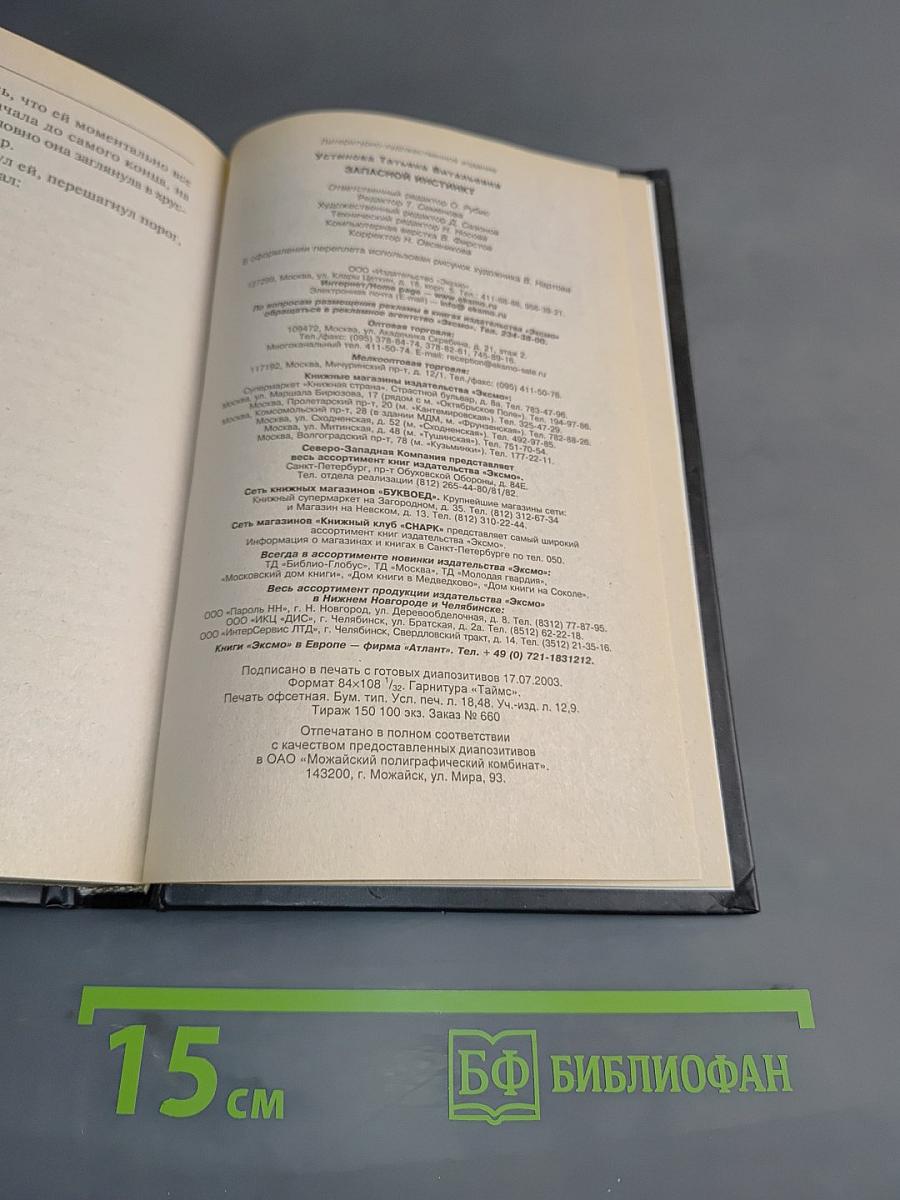 ь, что ей моментально все
чала до самого конца, на
ловно она заглянула в хрус-
р.
ул ей, перешагнул порог,
ал:
Литературно-художественное издание
Устинова Татьяна Витальевна
ЗАПАСНОЙ ИНСТИНКТ
Ответственный редактор О. Рубис
Редактор Т. Семенова
Художественный редактор Д. Сазонов
Технический редактор Н. Носова
Компьютерная верстка В. Фирстов
Корректор Н. Овсяникова
В оформлении переплета использован рисунок художника В. Нартова
ООО «Издательство «Эксмо»
127299, Москва, ул. Клары Цеткин, д. 18, корп. 5. Тел.: 411-68-86, 956-39-21.
Интернет/Home page — www.eksmo.ru
Электронная почта (E-mail) — info@ eksmo.ru
По вопросам размещения рекламы в книгах издательства «Эксмо»
обращаться в рекламное агентство «Эксмо». Тел. 234-38-00.
Оптовая торговля:
109472, Москва, ул. Академика Скрябина, д. 21, этаж 2.
Тел./факс: (095) 378-84-74, 378-82-61, 745-89-16.
Многоканальный тел. 411-50-74. E-mail: reception@eksmo-sale.ru
Мелкооптовая торговля:
117192, Москва, Мичуринский пр-т, д. 12/1. Тел./факс: (095) 411-50-76.
Книжные магазины издательства «Эксмо»:
Супермаркет «Книжная страна». Страстной бульвар, д. 8а. Тел. 783-47-96.
Москва, ул. Маршала Бирюзова, 17 (рядом с м. «Октябрьское Поле»). Тел. 194-97-86.
Москва, Пролетарский пр-т, 20 (м. «Кантемировская»). Тел. 325-47-29.
Москва, Комсомольский пр-т, 28 (в здании МДМ, м. «Фрунзенская»). Тел. 782-88-26.
Москва, ул. Сходненская, д. 52 (м. «Сходненская»). Тел. 492-97-85.
Москва, ул. Митинская, д. 48 (м. «Тушинская»). Тел. 751-70-54.
Москва, Волгоградский пр-т, 78 (м. «Кузьминки»). Тел. 177-22-11.
Северо-Западная Компания представляет
весь ассортимент книг издательства «Эксмо».
Санкт-Петербург, пр-т Обуховской Обороны, д. 84Е.
Тел. отдела реализации (812) 265-44-80/81/82.
Сеть книжных магазинов «БУКВОЕД». Крупнейшие магазины сети:
Книжный супермаркет на Загородном, д. 35. Тел. (812) 312-67-34
и Магазин на Невском, д. 13. Тел. (812) 310-22-44.
Сеть магазинов «Книжный клуб «СНАРК» представляет самый широкий
ассортимент книг издательства «Эксмо».
Информация о магазинах и книгах в Санкт-Петербурге по тел. 050.
Всегда в ассортименте новинки издательства «Эксмо»:
ТД «Библио-Глобус», ТД «Москва», ТД «Молодая гвардия»,
«Московский дом книги», «Дом книги в Медведково», «Дом книги на Соколе».
Весь ассортимент продукции издательства «Эксмо»
в Нижнем Новгороде и Челябинске:
ООО «Пароль НН», г. Н. Новгород, ул. Деревообделочная, д. 8. Тел. (8312) 77-87-95.
ООО «ИКЦ «ДИС», г. Челябинск, ул. Братская, д. 2а. Тел. (8512) 62-22-18.
ООО «ИнтерСервис ЛТД», г. Челябинск, Свердловский тракт, д. 14. Тел. (3512) 21-35-16.
Книги «Эксмо» в Европе — фирма «Атлант». Тел. + 49 (0) 721-1831212.
Подписано в печать с готовых диапозитивов 17.07.2003.
Формат 84×108 1/32. Гарнитура «Таймс».
Печать офсетная. Бум. тип. Усл. печ. л. 18,48. Уч.-изд. л. 12,9.
Тираж 150 100 экз. Заказ № 660
Отпечатано в полном соответствии
с качеством предоставленных диапозитивов
в ОАО «Можайский полиграфический комбинат».
143200, г. Можайск, ул. Мира, 93.
15 см
БФ БИБЛИОФАН